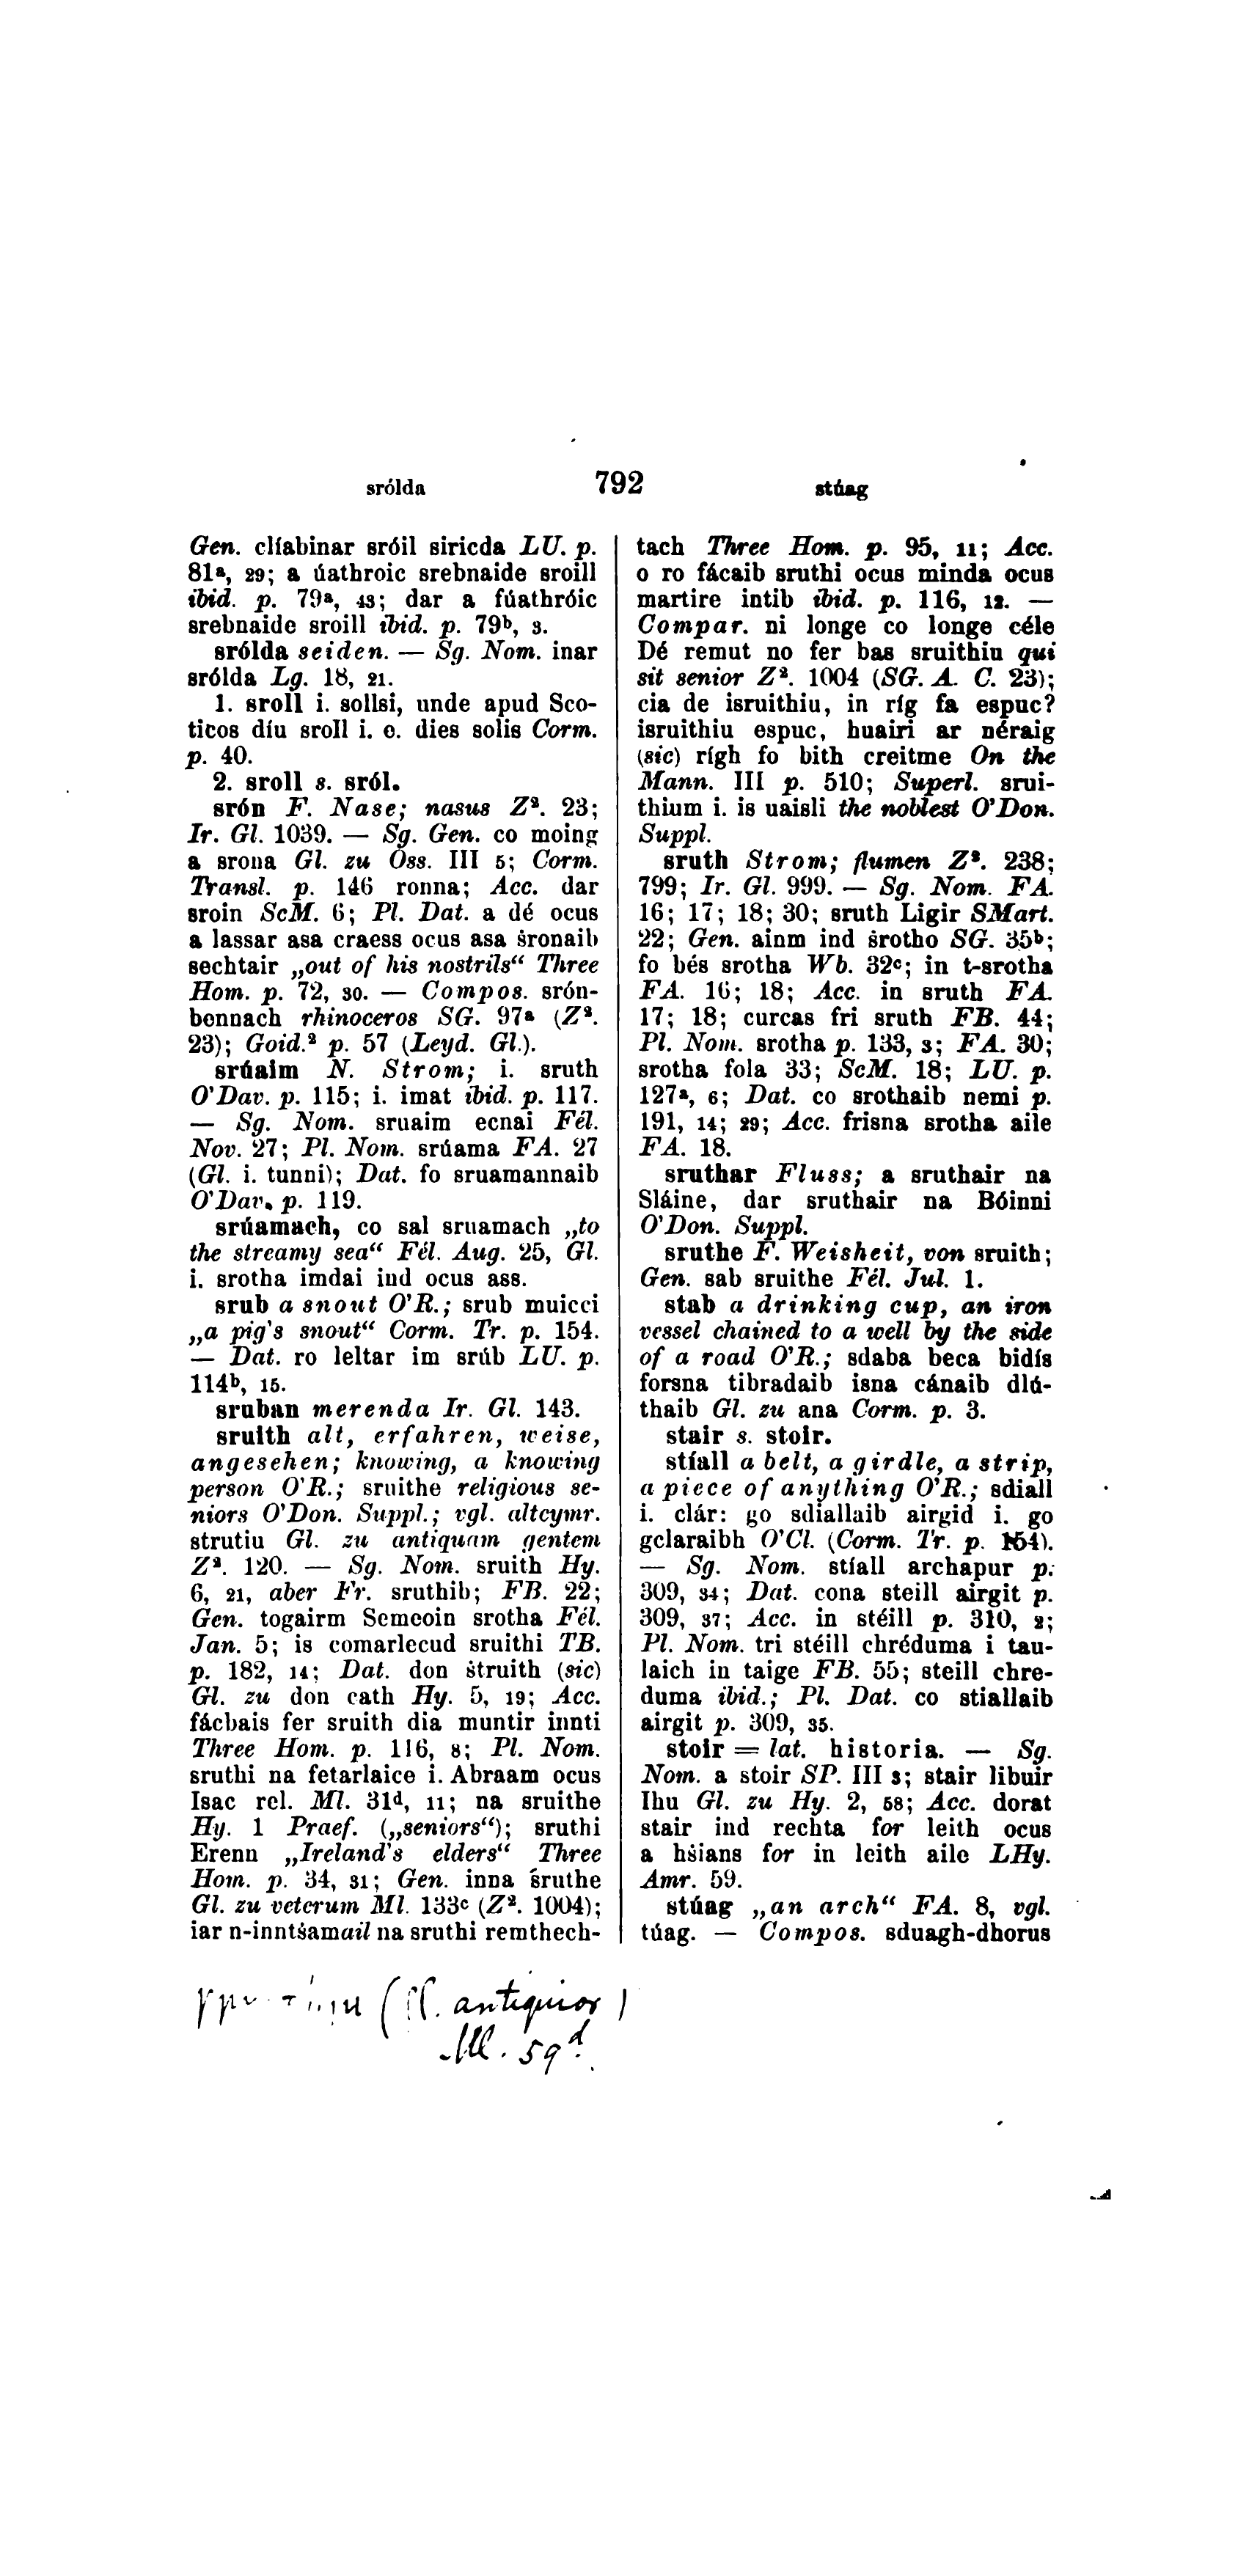 srólda 792 stúag
Gen. clíabinar sróil siricda LU. p.
81ª, 29; a úathroic srebnaide sroill
ibid. p. 79ª, 43; dar a fúathróic
srebnaide sroill ibid. p. 79ᵇ, 3.
srólda seiden. — Sg. Nom. inar
srólda Lg. 18, 21.
1. sroll i. sollsi, unde apud Sco-
ticos díu sroll i. e. dies solis Corm.
p. 40.
2. sroll s. sról.
srón F. Nase; nasus Z². 23;
Ir. Gl. 1039. — Sg. Gen. co moing
a srona Gl. zu Oss. III 5; Corm.
Transl. p. 146 ronna; Acc. dar
sroin ScM. 6; Pl. Dat. a dé ocus
a lassar asa craess ocus asa ṡronaib
sechtair „out of his nostrils“ Three
Hom. p. 72, 30. — Compos. srón-
bennach rhinoceros SG. 97ª (Z².
23); Goid.² p. 57 (Leyd. Gl.).
srúaim N. Strom; i. sruth
O'Dav. p. 115; i. imat ibid. p. 117.
— Sg. Nom. sruaim ecnai Fél.
Nov. 27; Pl. Nom. srúama FA. 27
(Gl. i. tunni); Dat. fo sruamannaib
O'Dav. p. 119.
srúamach, co sal sruamach „to
the streamy sea“ Fél. Aug. 25, Gl.
i. srotha imdai ind ocus ass.
srub a snout O'R.; srub muicci
„a pig's snout“ Corm. Tr. p. 154.
— Dat. ro leltar im srúb LU. p.
114ᵇ, 15.
sruban merenda Ir. Gl. 143.
sruith alt, erfahren, weise,
angesehen; knowing, a knowing
person O'R.; sruithe religious se-
niors O'Don. Suppl.; vgl. altcymr.
strutiu Gl. zu antiquam gentem
Z². 120. — Sg. Nom. sruith Hy.
6, 21, aber Fr. sruthib; FB. 22;
Gen. togairm Semeoin srotha Fél.
Jan. 5; is comarlecud sruithi TB.
p. 182, 14; Dat. don ṡtruith (sic)
Gl. zu don cath Hy. 5, 19; Acc.
fácbais fer sruith dia muntir innti
Three Hom. p. 116, 8; Pl. Nom.
sruthi na fetarlaice i. Abraam ocus
Isac rel. Ml. 31ᵈ, 11; na sruithe
Hy. 1 Praef. („seniors“); sruthi
Erenn „Ireland's elders“ Three
Hom. p. 34, 31; Gen. inna ṡruthe
Gl. zu veterum Ml. 133ᶜ (Z². 1004);
iar n-inntṡamail na sruthi remthech-
tach Three Hom. p. 95, 11; Acc.
o ro fácaib sruthi ocus minda ocus
martire intib ibid. p. 116, 12. —
Compar. ni longe co longe céle
Dé remut no fer bas sruithiu qui
sit senior Z². 1004 (SG. A. C. 23);
cia de isruithiu, in ríg fa espuc?
isruithiu espuc, huairi ar néraig
(sic) rígh fo bith creitme On the
Mann. III p. 510; Superl. srui-
thium i. is uaisli the noblest O'Don.
Suppl.
sruth Strom; flumen Z². 238;
799; Ir. Gl. 999. — Sg. Nom. FA.
16; 17; 18; 30; sruth Ligir SMart.
22; Gen. ainm ind ṡrotho SG. 35ᵇ;
fo bés srotha Wb. 32ᶜ; in t-srotha
FA. 16; 18; Acc. in sruth FA.
17; 18; curcas fri sruth FB. 44;
Pl. Nom. srotha p. 133, 3; FA. 30;
srotha fola 33; ScM. 18; LU. p.
127ª, 6; Dat. co srothaib nemi p.
191, 14; 29; Acc. frisna srotha aile
FA. 18.
sruthar Fluss; a sruthair na
Sláine, dar sruthair na Bóinni
O'Don. Suppl.
sruthe F. Weisheit, von sruith;
Gen. sab sruithe Fél. Jul. 1.
stab a drinking cup, an iron
vessel chained to a well by the side
of a road O'R.; sdaba beca bidís
forsna tibradaib isna cánaib dlú-
thaib Gl. zu ana Corm. p. 3.
stair s. stoir.
stíall a belt, a girdle, a strip,
a piece of anything O'R.; sdiall
i. clár: go sdiallaib airgid i. go
gclaraibh O'Cl. (Corm. Tr. p. 154).
— Sg. Nom. stíall archapur p.
309, 34; Dat. cona steill airgit p.
309, 37; Acc. in stéill p. 310, 2;
Pl. Nom. tri stéill chréduma i tau-
laich in taige FB. 55; steill chre-
duma ibid.; Pl. Dat. co stiallaib
airgit p. 309, 35.
stoir = lat. historia. — Sg.
Nom. a stoir SP. III 3; stair libuir
Ihu Gl. zu Hy. 2, 58; Acc. dorat
stair ind rechta for leith ocus
a hṡians for in leith aile LHy.
Amr. 59.
stúag „an arch“ FA. 8, vgl.
túag. — Compos. sduagh-dhorus
antiquior)
Ml. 59ᵈ.